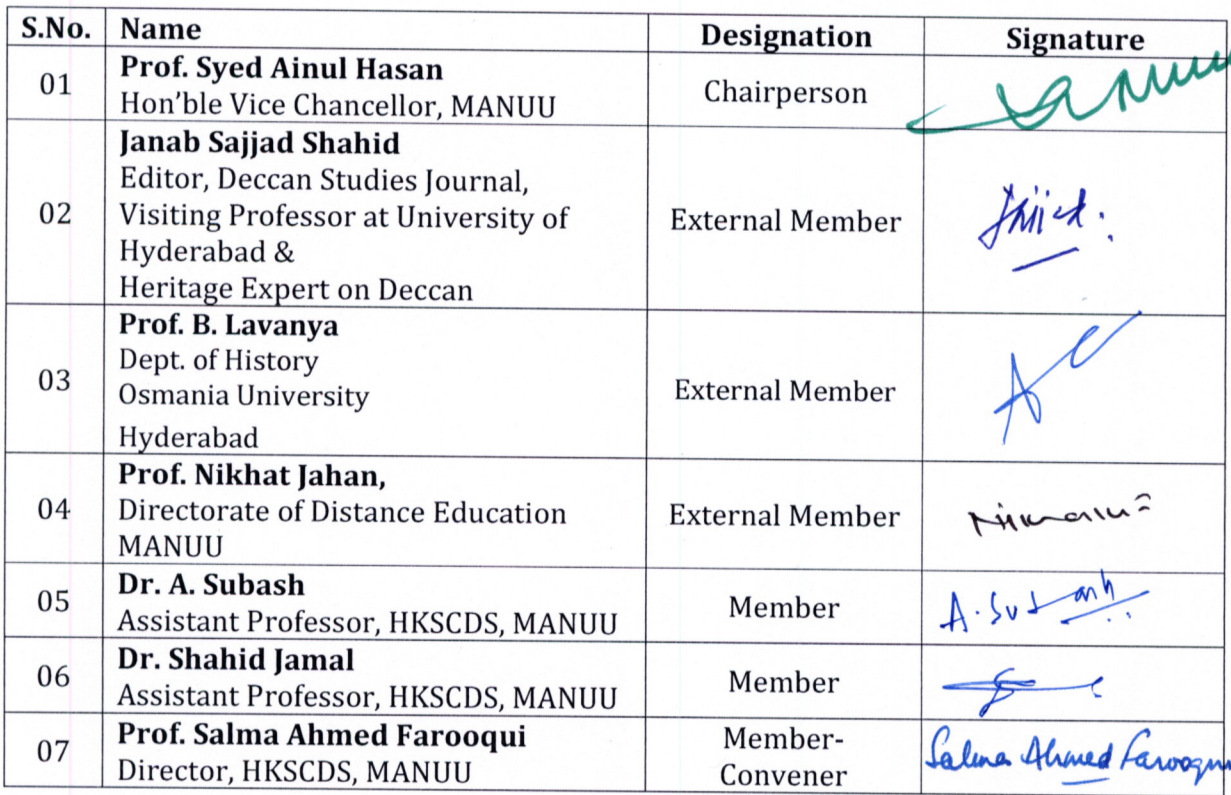 S.No. Name Designation Signature
01 Prof. Syed Ainul Hasan
Hon'ble Vice Chancellor, MANUU Chairperson
02 Janab Sajjad Shahid
Editor, Deccan Studies Journal,
Visiting Professor at University of
Hyderabad &
Heritage Expert on Deccan External Member
03 Prof. B. Lavanya
Dept. of History
Osmania University
Hyderabad External Member
04 Prof. Nikhat Jahan,
Directorate of Distance Education
MANUU External Member
05 Dr. A. Subash
Assistant Professor, HKSCDS, MANUU Member A. Subash
06 Dr. Shahid Jamal
Assistant Professor, HKSCDS, MANUU Member
07 Prof. Salma Ahmed Farooqui
Director, HKSCDS, MANUU Member-
Convener Salma Ahmed Farooqui